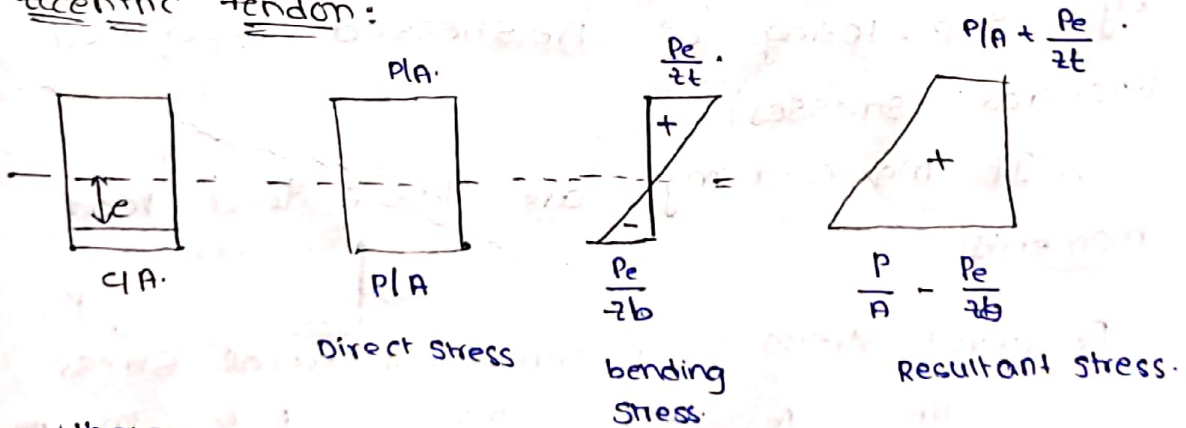 tendon:
P/A.
Pe/zt .
P/A + Pe/zt .
+
+
e
-
=
C/A.
P/A
Pe/zb
P/A - Pe/zb
Direct Stress
bending
Stress.
Resultant stress.